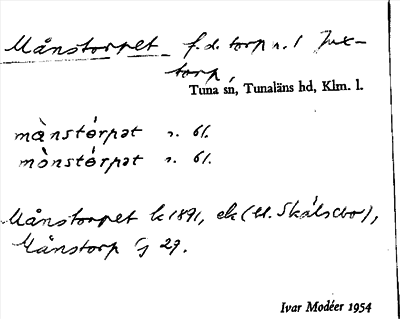 Månstorpet f.d. torp u. 1 Jux-
torp
Tuna sn, Tunaläns hd, Klm. l.
månstórpət u. 61.
mònstórpət u. 61.
Månstorpet k 1891, ek (U. Skålsbo),
Månstorp Cj 27.
Ivar Modéer 1954